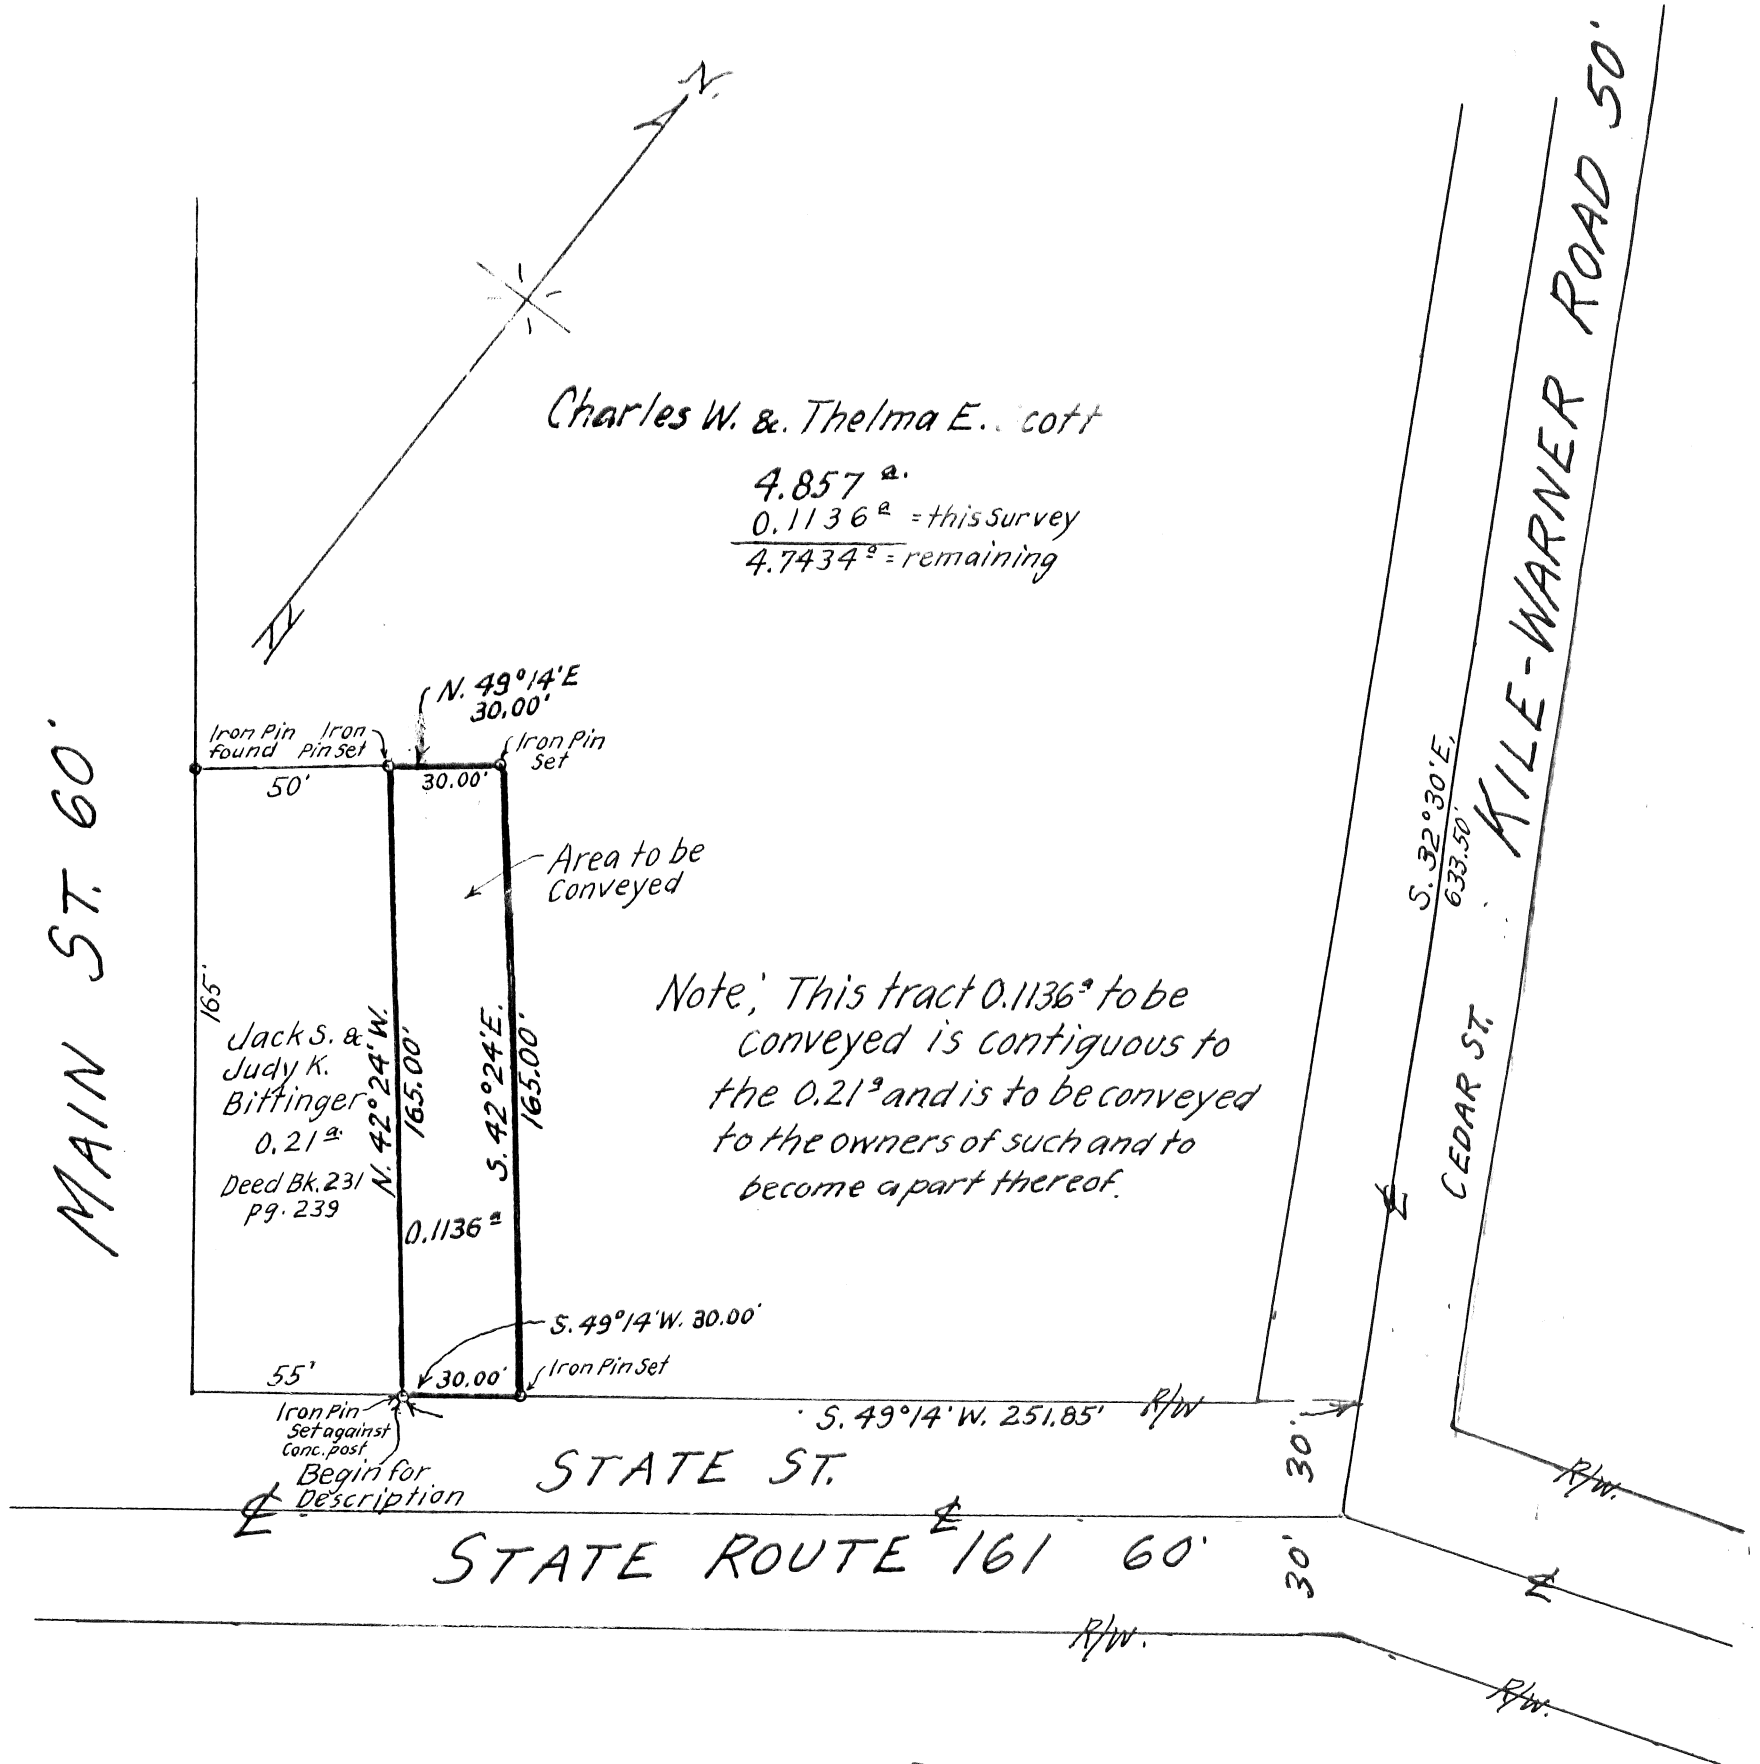 N.
KILE-WARNER ROAD 50'
Charles W. & Thelma E. cott
4.857 a.
0.1136 a = this Survey
4.7434 a = remaining
N. 49°14'E
30.00'
Iron Pin found
Iron Pin Set
Iron Pin
Set
50'
30.00'
MAIN ST. 60'
Area to be
Conveyed
S. 32°30'E.
633.50'
165'
Jack S. &
Judy K.
Bittinger
0.21 a.
Deed Bk. 231
pg. 239
N. 42°24'W.
165.00'
S. 42°24'E.
165.00'
0.1136 a
Note; This tract 0.1136 a to be
conveyed is contiguous to
the 0.21 a and is to be conveyed
to the owners of such and to
become a part thereof.
CEDAR ST.
S. 49°14'W. 30.00'
Iron Pin Set
55'
30.00'
Iron Pin
Set against
Conc. post
Begin for
Description
S. 49°14'W. 251.85'
R/W
STATE ST.
30'
R/W.
STATE ROUTE 161 60'
30'
R/W.
R/W.